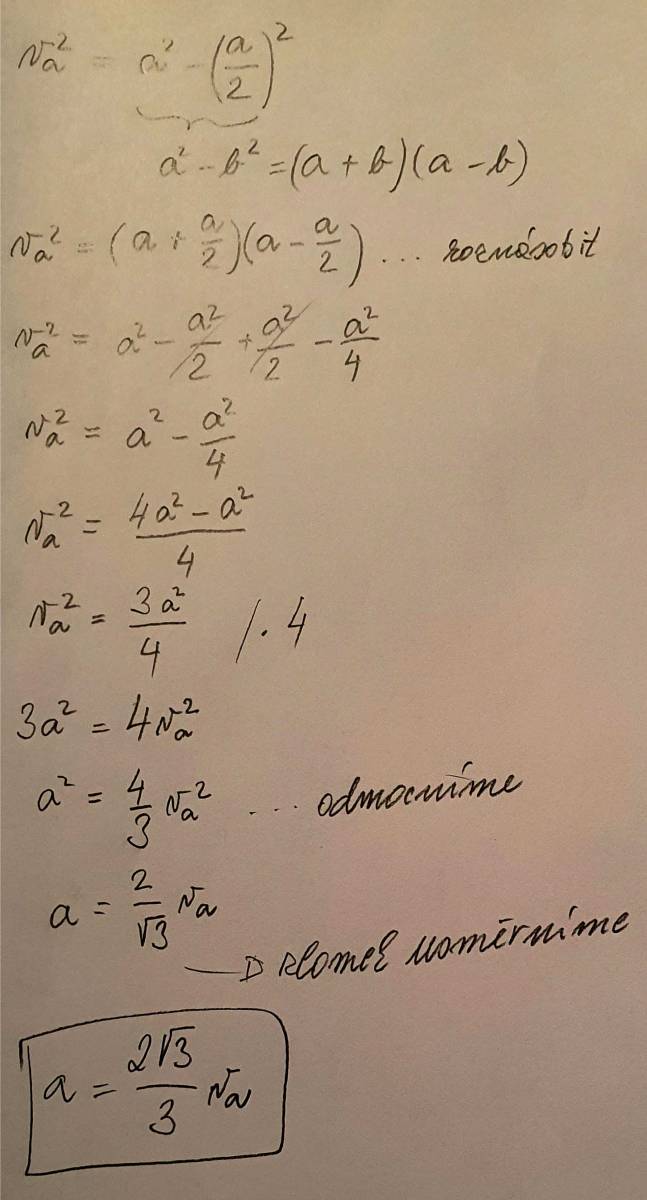 v_a^2 = a^2 - (a/2)^2
a^2 - b^2 = (a + b)(a - b)
v_a^2 = (a + a/2)(a - a/2) ... roznásobit
v_a^2 = a^2 - a^2/2 + a^2/2 - a^2/4
v_a^2 = a^2 - a^2/4
v_a^2 = (4a^2 - a^2)/4
v_a^2 = 3a^2/4 /· 4
3a^2 = 4v_a^2
a^2 = 4/3 v_a^2 ... odmocníme
a = 2/√3 v_a
→ zlomek usměrníme
a = 2√3/3 v_a